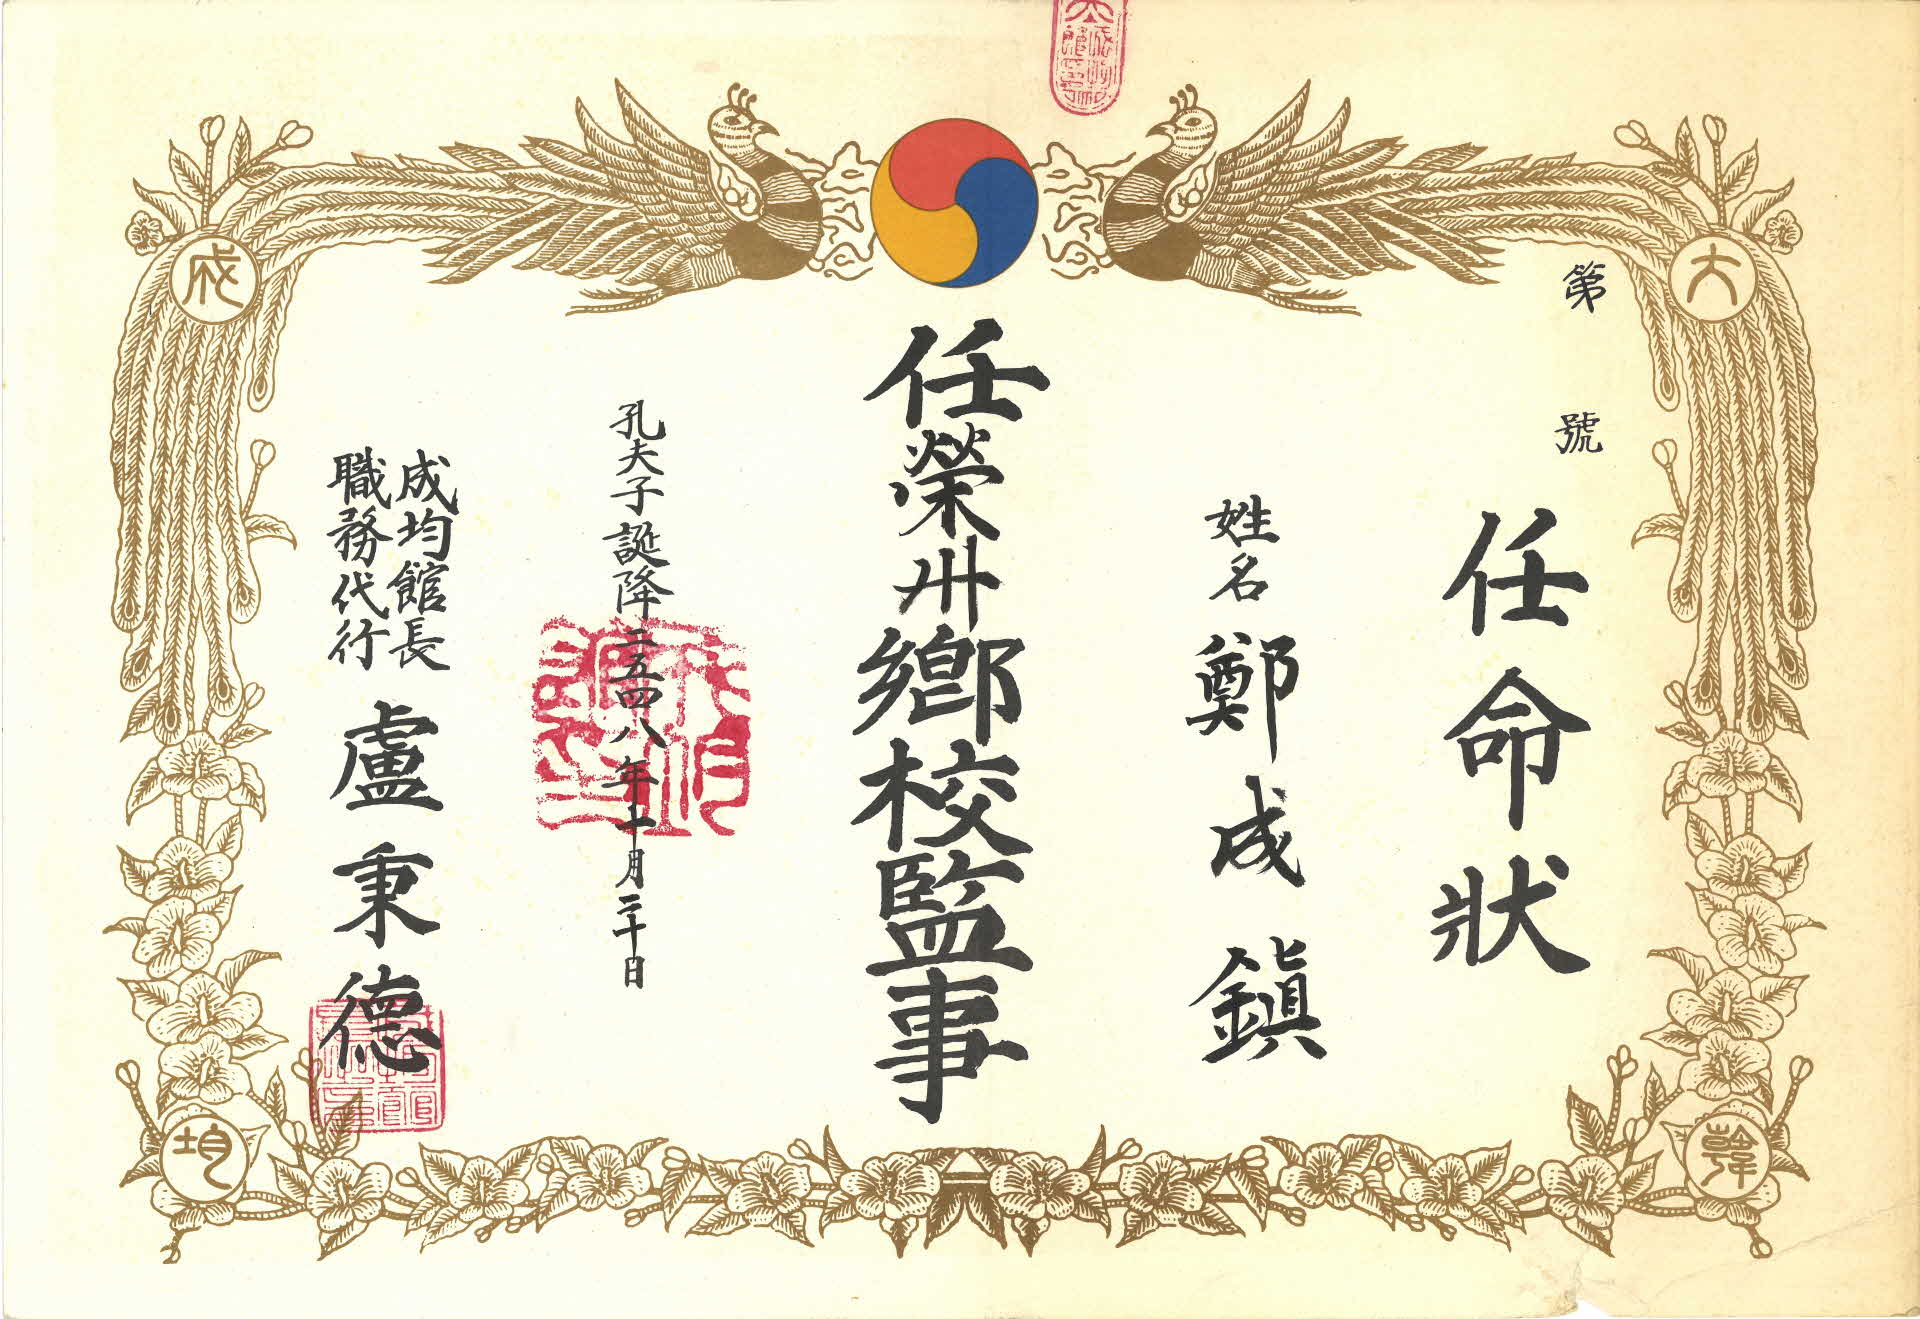 大
韓
成
均
第 號
任命狀
姓名 鄭成鎭
任榮州鄕校監事
孔夫子誕降二五四八年十月二十日
成均館長
職務代行
盧秉德